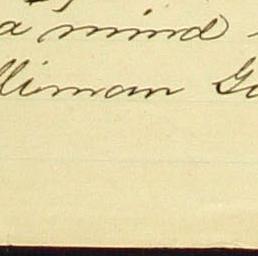 a mind
lliman